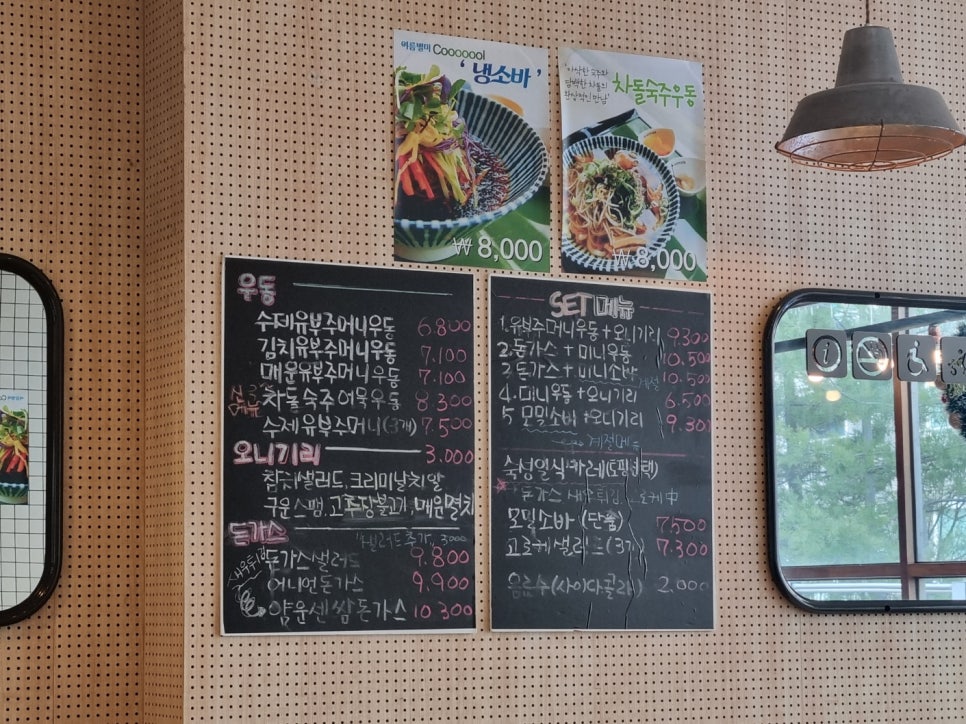 여름별미 Cooooool
'냉소바'
₩ 8,000
'아삭한 숙주와
담백한 차돌의
환상적인 만남'
차돌숙주우동
₩ 8,000
우동
수제유부주머니우동 6.800
김치유부주머니우동 7.100
매운유부주머니우동 7.100
신메뉴 차돌숙주어묵우동 8.300
수제유부주머니(3개) 7.500
오니기리 3.000
참치샐러드, 크리미날치알
구운스팸, 고추당불고기, 매운멸치
돈가스
샐러드추가, 3000
돈가스샐러드 9.800
어니언돈가스 9.900
얌운센쌈돈가스 10.300
SET메뉴
1. 유부주머니우동+오니기리 9300
2. 돈가스+미니우동 10.500
3. 돈가스+미니소바 10.500
4. 미니우동+오니기리 6.500
5. 모밀소바+오니기리 9.300
계절메뉴
숙성일식카레(토핑선택)
돈가스 새우튀김 中
모밀소바 (단품) 7500
고로케샐러드(3개) 7.300
음료수(사이다콜라) 2.000